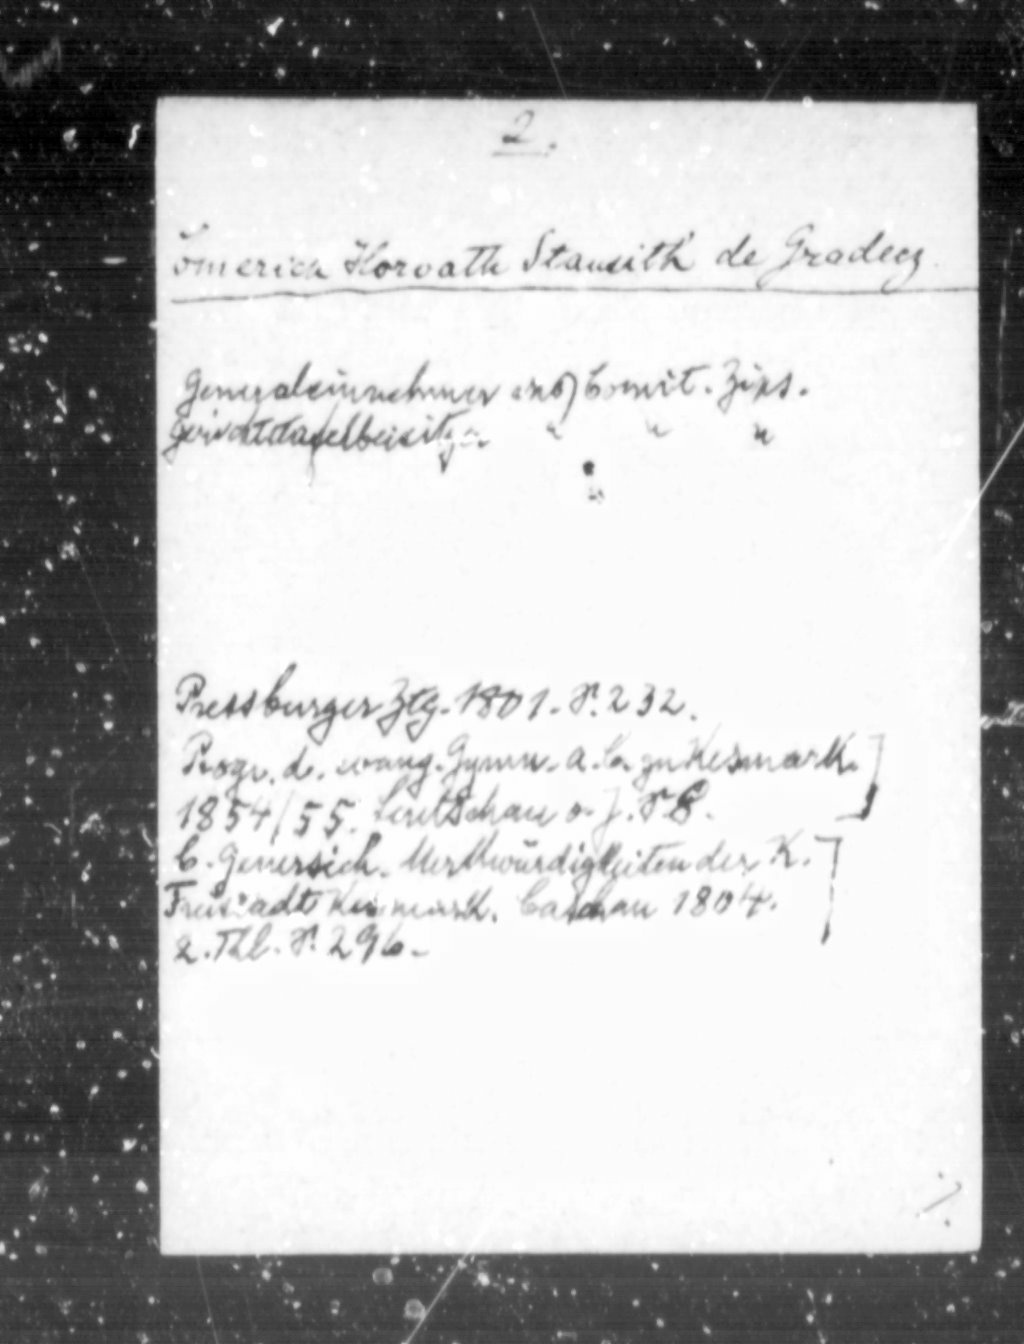 2.
Emerich Horvath Stansith de Gradecz.
Generaleinnehmer Comit. Zips.
Gerichtstafelbeisitzer " " "
Pressburger Ztg. 1801. S. 232.
Progr. d. evang. Gymn. a. C. zu Kesmark.
1854/55. Leutschau o. J. S. 8.
C. Genersich. Merkwürdigkeiten der K.
Freistadt Kesmark. Caschau 1804.
2. Thl. S. 296.